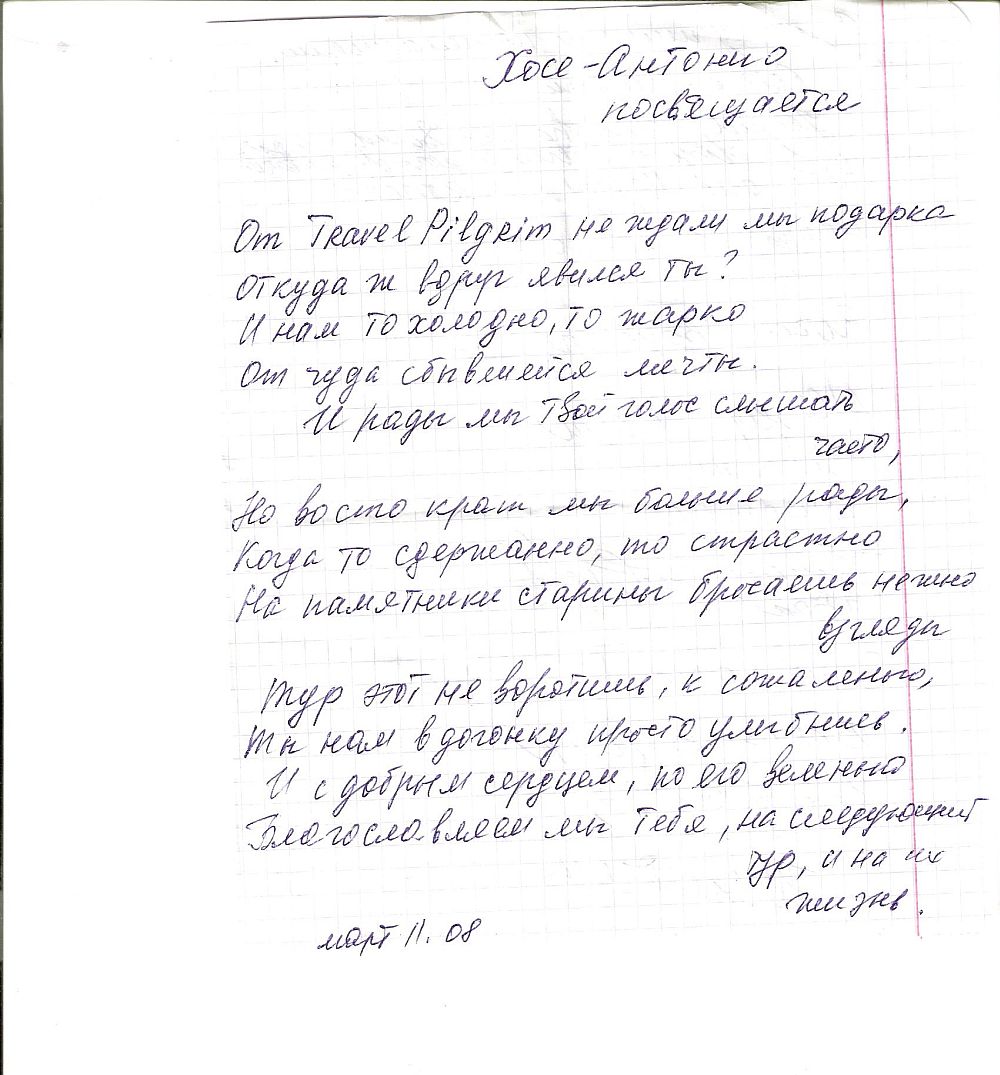 Хосе-Антонио
посвящается
От Travel Pilgrim не ждали мы подарка
Откуда ж вдруг явился ты?
И нам то холодно, то жарко
От чуда сбывшейся мечты.
И рады мы твой голос слышать
часто,
Но во сто крат мы больше рады,
Когда то сдержанно, то страстно
На памятники старины бросаешь нежно
взгляды
Тур этот не воротишь, к сожаленью,
Ты нам в догонку просто улыбнись.
И с добрым сердцем, по его веленью
Благославляем мы тебя, на следующий
тур, и на их
жизнь.
март 11. 08